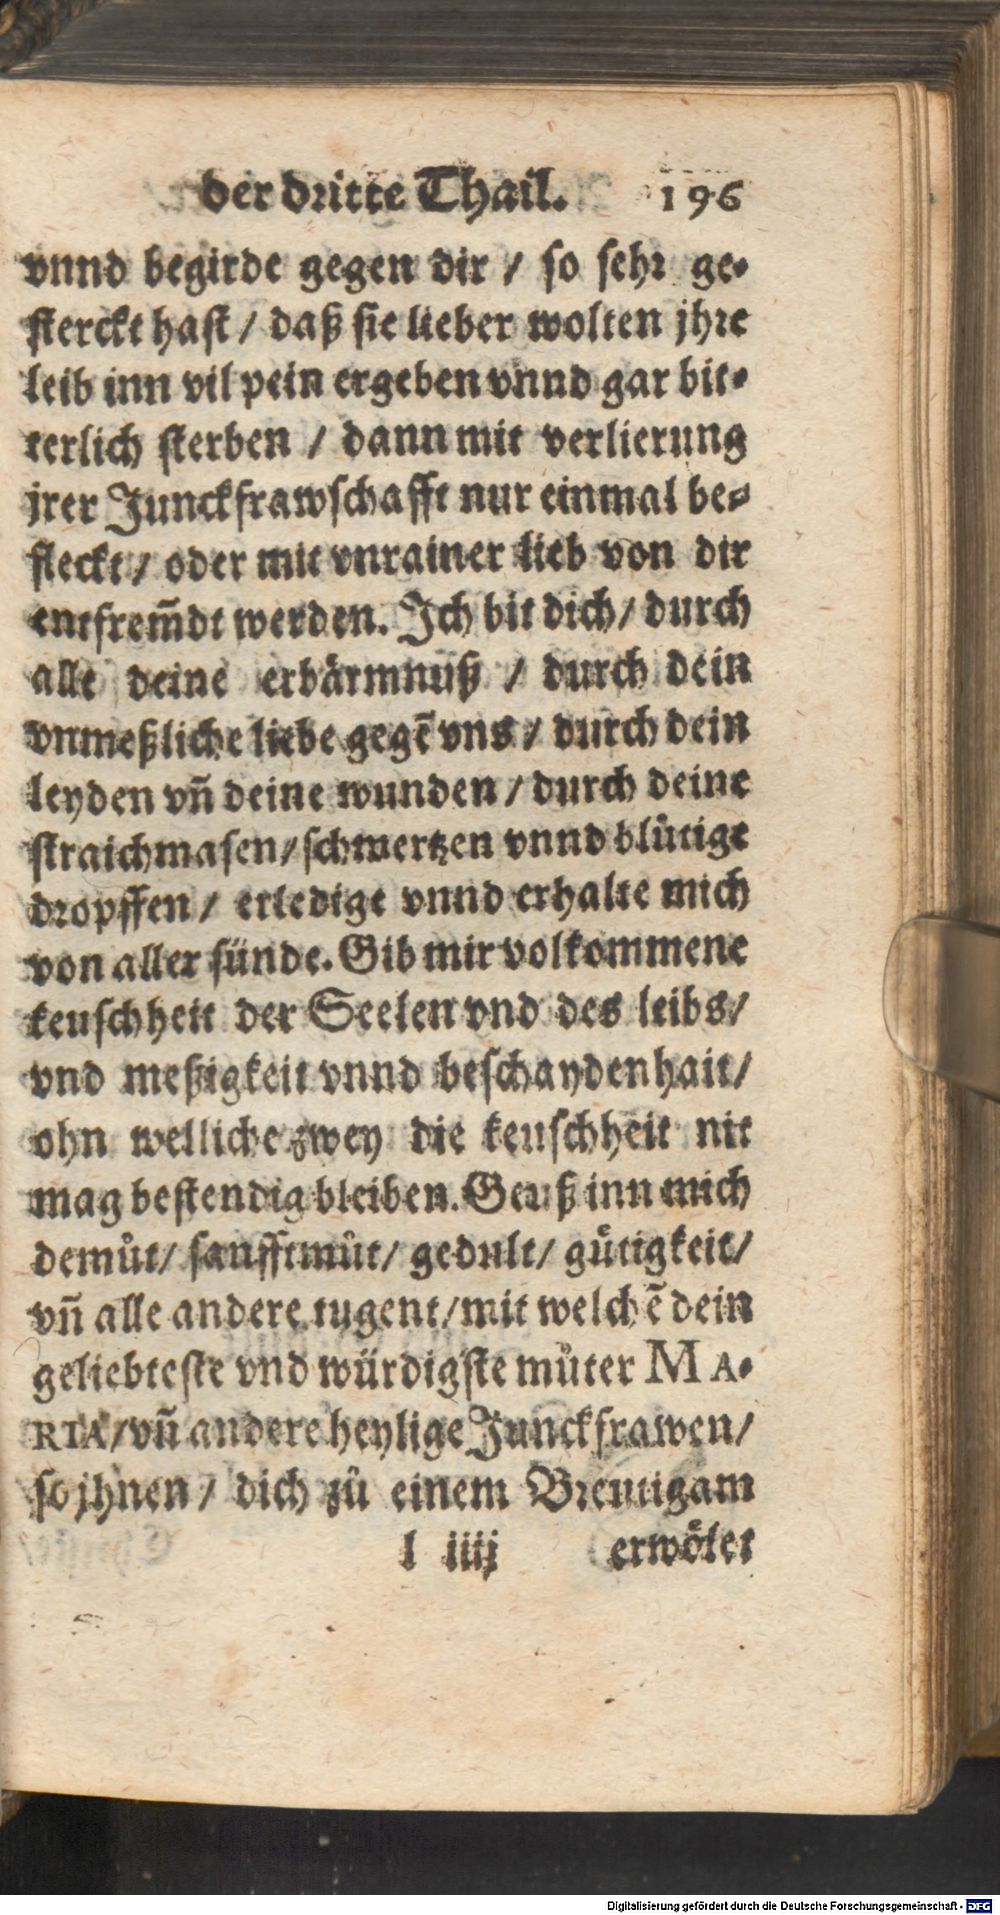 der dritte Thail. 196
vnnd begirde gegen dir / so sehr ge-
sterckt hast / daß sie lieber wolten jhre
leib inn vil pein ergeben vnnd gar bit-
terlich sterben / dann mit verlierung
jrer Junckfrawschafft nur einmal be-
fleckt / oder mit vnrainer lieb von dir
entfrem̃dt werden. Ich bit dich / durch
alle deine erbärmnuß / durch dein
vnmeßliche liebe gegẽ vns / durch dein
leyden vñ deine wunden / durch deine
straichmasen / schmertzen vnnd blůtige
dropffen / erledige vnnd erhalte mich
von aller sünde. Gib mir volkommene
keuschheit der Seelen vnd des leibs /
vnd meßigkeit vnnd beschaydenhait /
ohn welliche zwey die keuschheit nit
mag bestendig bleiben. Geuß inn mich
demůt / sanfftmůt / gedult / gůtigkeit /
vñ alle andere tugent / mit welchẽ dein
geliebteste vnd würdigste můter MA-
RIA / vñ andere heylige Junckfrawen /
so jhnen / dich zů einem Breutigam
l iiij erwölet
Digitalisierung gefördert durch die Deutsche Forschungsgemeinschaft - DFG